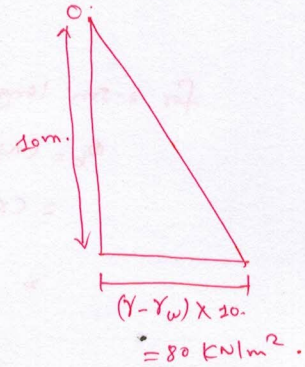 0
10m.
(γ-γw) × 10.
= 80 KN/m².